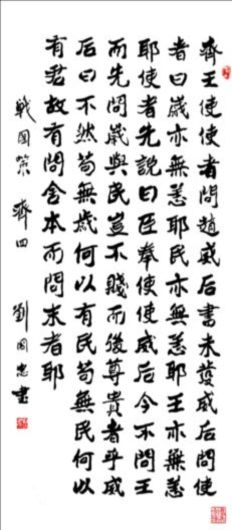 齊王使使者問趙威后書未發威后問使
者曰歲亦無恙耶民亦無恙耶王亦無恙
耶使者先說曰臣奉使使威后今不問王
而先問歲與民豈不賤而後尊貴者乎威
后曰不然苟無歲何以有民苟無民何以
有君故有問舍本而問末者耶
戰国策 齊四 劉国忠書